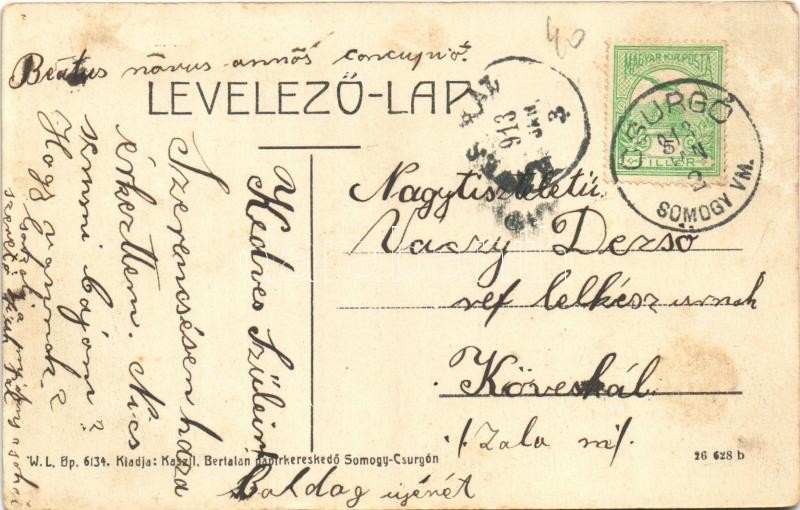 40
Beatus novus annos
LEVELEZŐ-LAP
MAGYAR KIR. POSTA
FILLÉR
CSURGÓ
913
SOMOGY VM.
913
JAN.
3
Nagytiszteletű
Vaczy Dezső
ref lelkész urnak
Köveskál
/. Zala m/.
Kedves Szüleim
Szerencsésen haza
érkeztem. Nics
semmi bajom?
Hogy vannak?
Boldog ujévét
W. L. Bp. 6134. Kiadja: Kaszil. Bertalan papirkereskedő Somogy-Csurgón
26 628 b